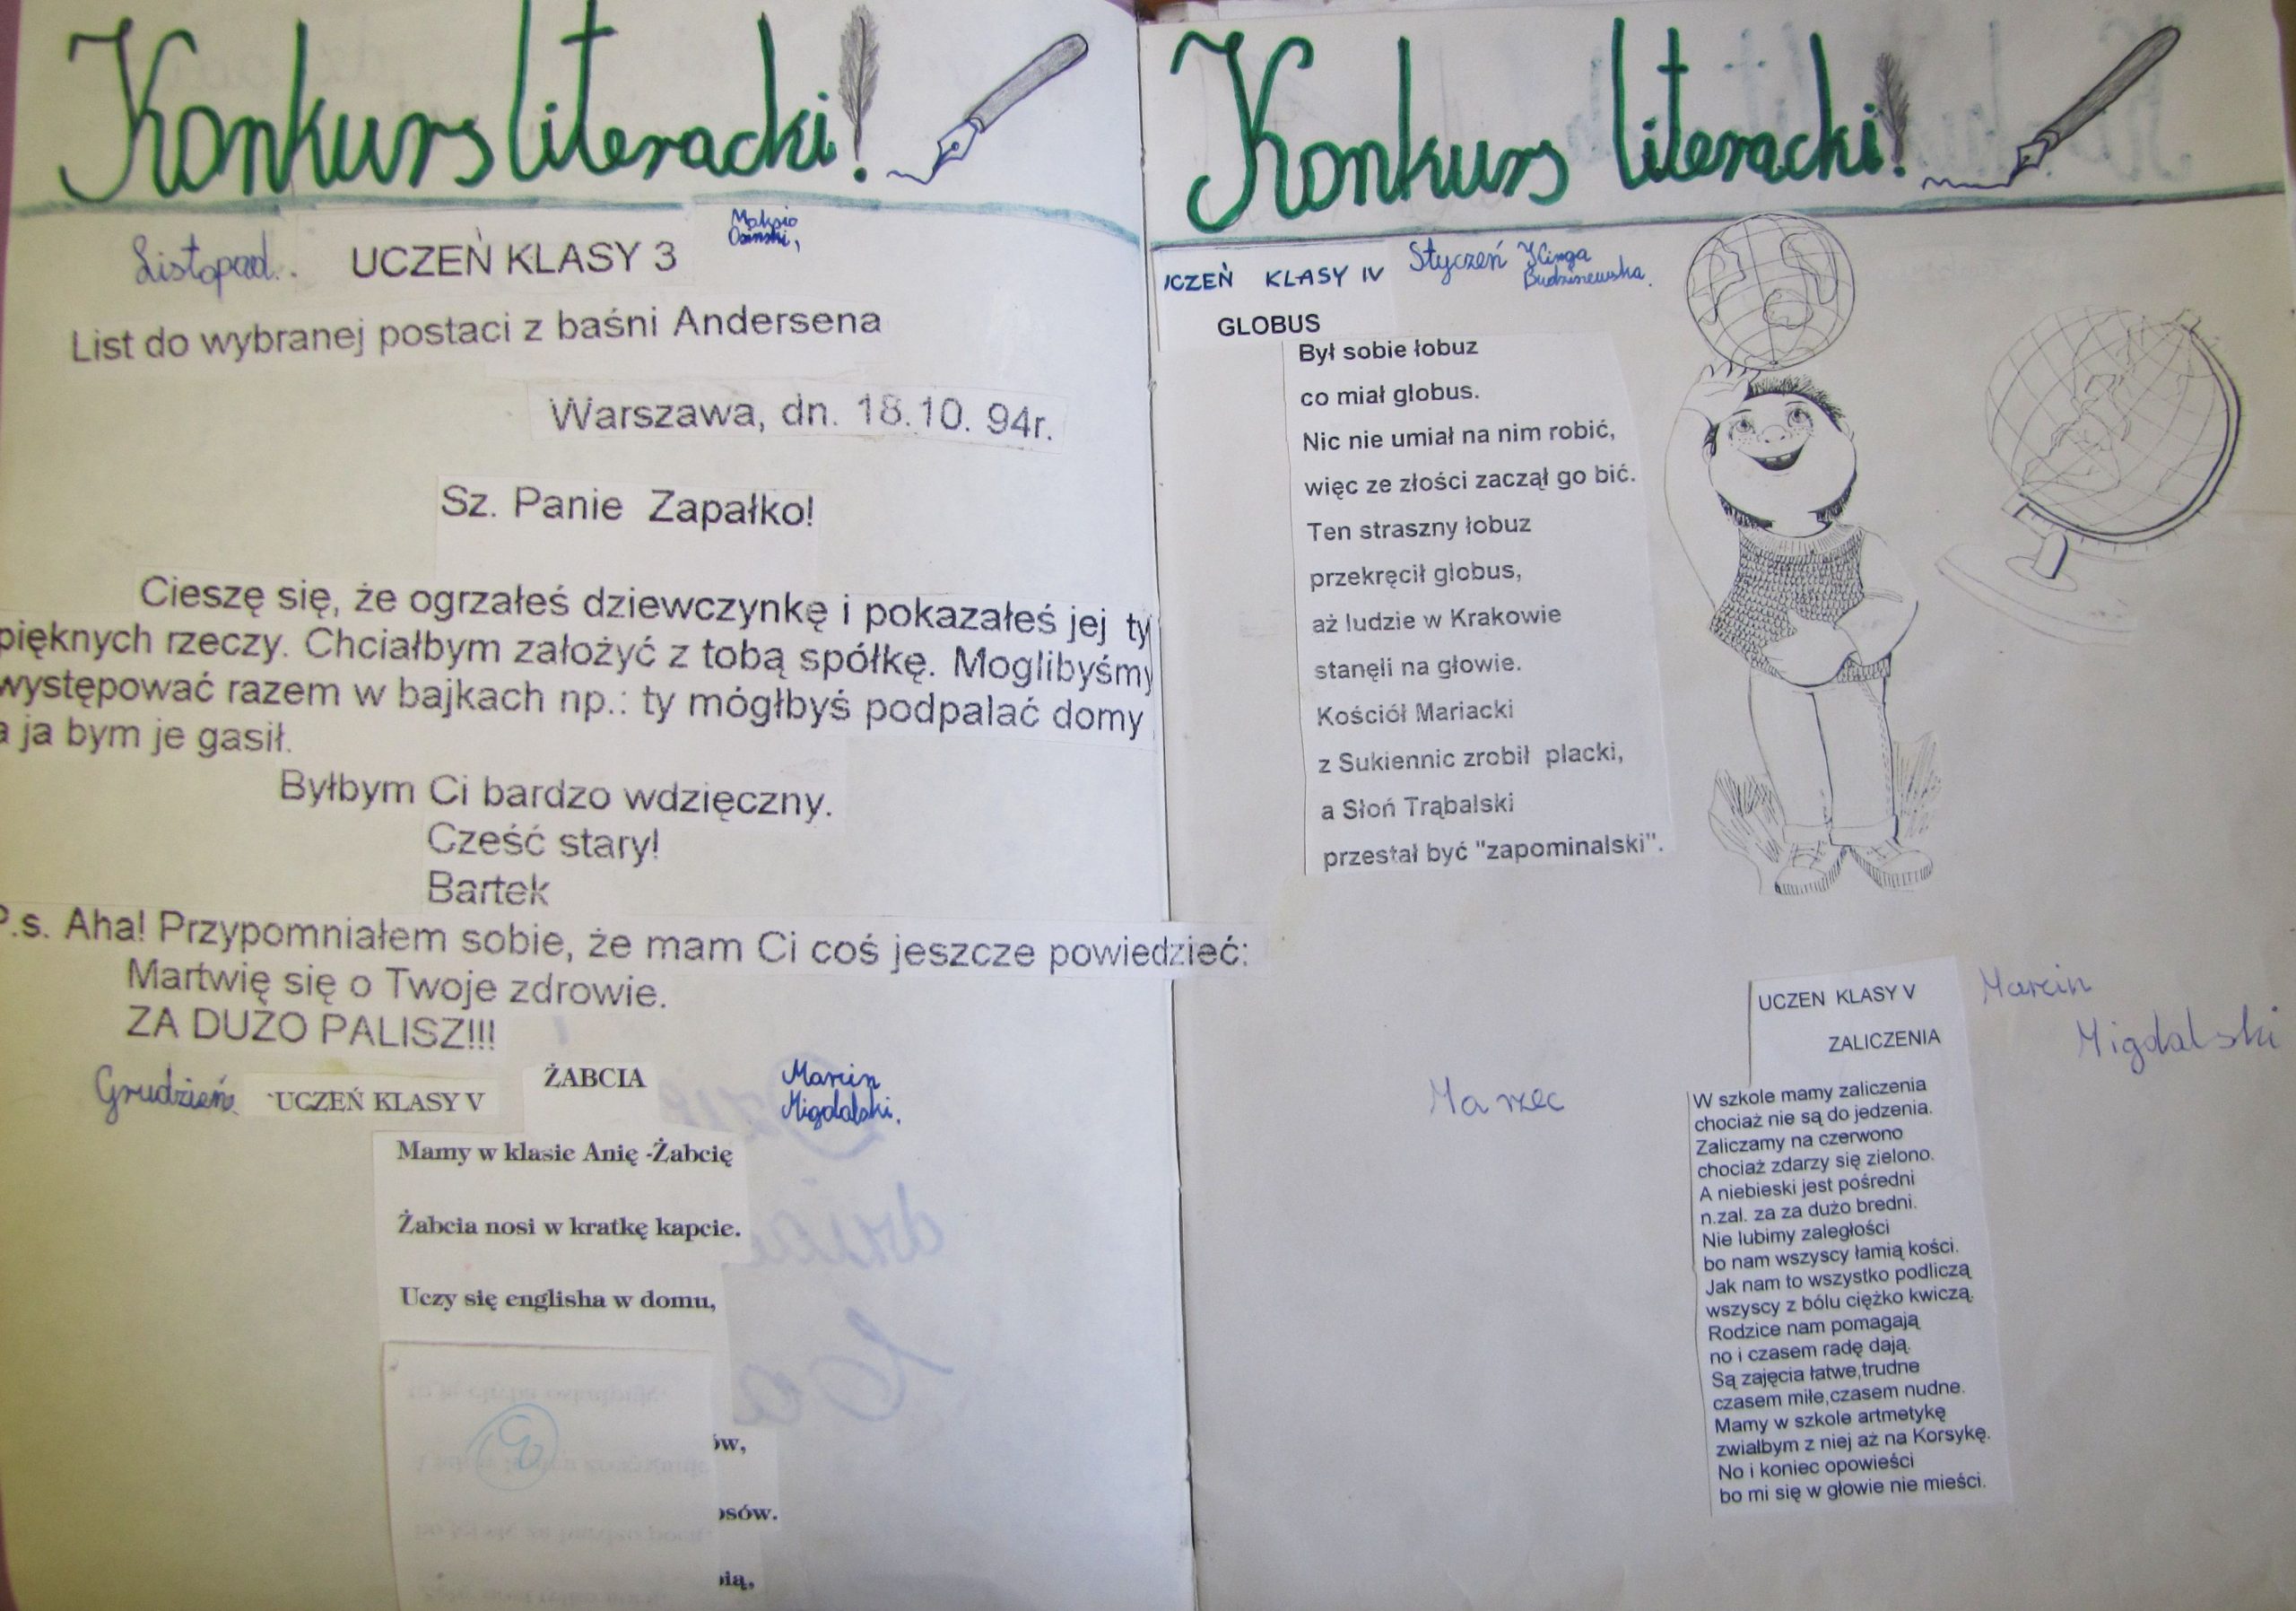 Konkurs literacki!
Listopad.. UCZEŃ KLASY 3 Maksio
Osinski,
List do wybranej postaci z baśni Andersena
Warszawa, dn. 18.10. 94r.
Sz. Panie Zapałko!
Cieszę się, że ogrzałeś dziewczynkę i pokazałeś jej ty
pięknych rzeczy. Chciałbym założyć z tobą spółkę. Moglibyśmy
występować razem w bajkach np.: ty mógłbyś podpalać domy
a ja bym je gasił.
Byłbym Ci bardzo wdzięczny.
Cześć stary!
Bartek
P.s. Aha! Przypomniałem sobie, że mam Ci coś jeszcze powiedzieć:
Martwię się o Twoje zdrowie.
ZA DUŻO PALISZ!!!
Grudzień. UCZEŃ KLASY V
ŻABCIA
Marcin
Migdalski.
Mamy w klasie Anię -Żabcię
Żabcia nosi w kratkę kapcie.
Uczy się englisha w domu,
ów,
osów.
ią,
Konkurs literacki!
UCZEŃ KLASY IV Styczeń Kinga
Budziszewska.
GLOBUS
Był sobie łobuz
co miał globus.
Nic nie umiał na nim robić,
więc ze złości zaczął go bić.
Ten straszny łobuz
przekręcił globus,
aż ludzie w Krakowie
stanęli na głowie.
Kościół Mariacki
z Sukiennic zrobił placki,
a Słoń Trąbalski
przestał być "zapominalski".
Marzec
UCZEN KLASY V
Marcin
Migdalski
ZALICZENIA
W szkole mamy zaliczenia
chociaż nie są do jedzenia.
Zaliczamy na czerwono
chociaż zdarzy się zielono.
A niebieski jest pośredni
n.zal. za za dużo bredni.
Nie lubimy zaległości
bo nam wszyscy łamią kości.
Jak nam to wszystko podliczą
wszyscy z bólu ciężko kwiczą.
Rodzice nam pomagają
no i czasem radę dają.
Są zajęcia łatwe,trudne
czasem miłe,czasem nudne.
Mamy w szkole artmetykę
zwiałbym z niej aż na Korsykę.
No i koniec opowieści
bo mi się w głowie nie mieści.